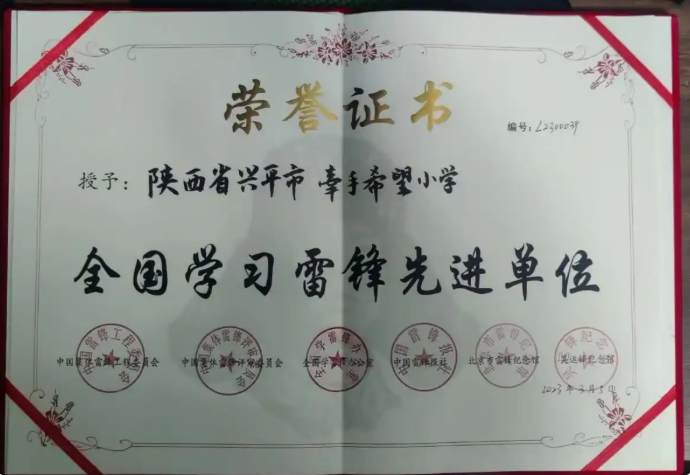 荣誉证书
编号：L2300039
授予：陕西省兴平市 牵手希望小学
全国学习雷锋先进单位
中国集体雷锋工程委员会 中国集体雷锋评审委员会 全国学 办公室 中国雷锋报社 北京市雷锋纪念馆 吴运铎纪念馆
2023年3月5日